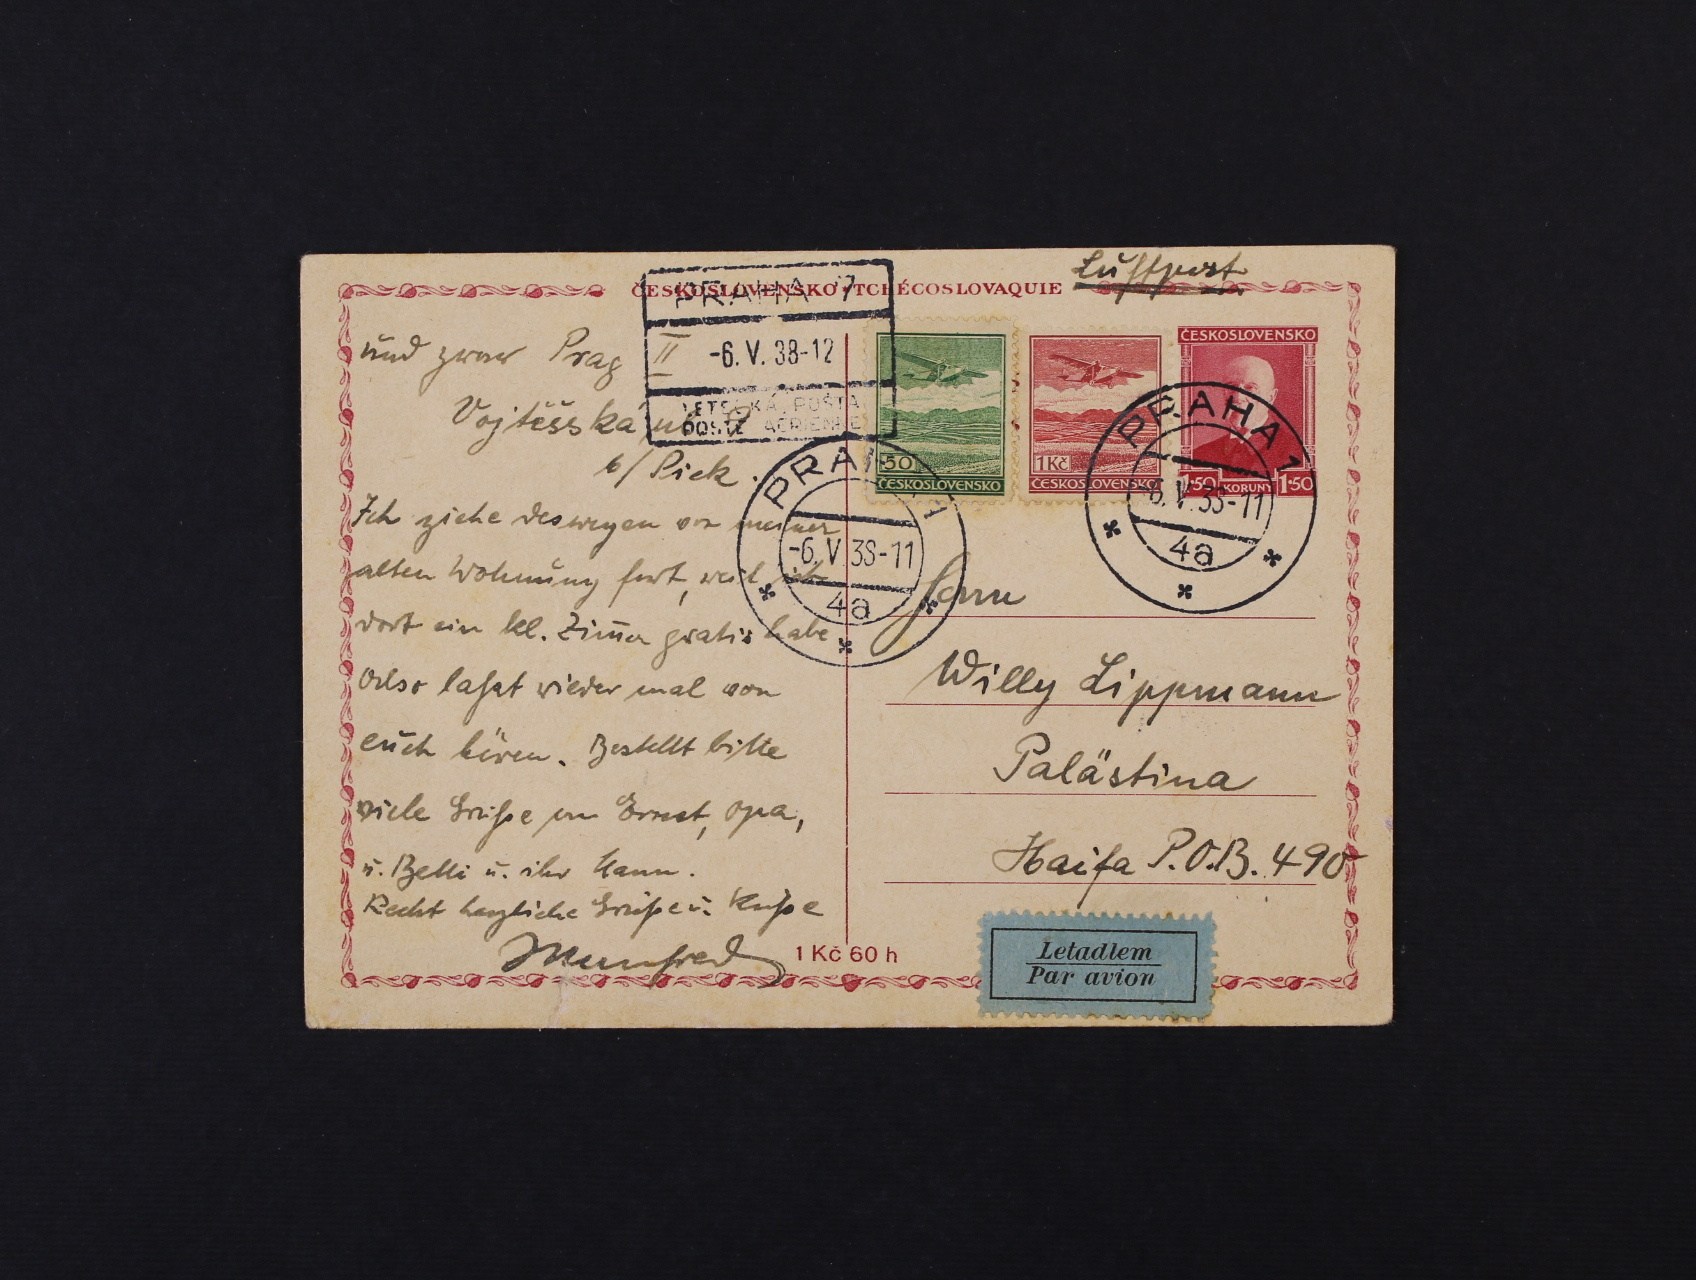 ČESKOSLOVENSKO•TCHÉCOSLOVAQUIE
Luftpost
PRAHA 7
-6.V.38-12
LETECKÁ POŠTA
POSTE AÉRIENNE
50
ČESKOSLOVENSKO
1Kč
ČESKOSLOVENSKO
ČESKOSLOVENSKO
1·50 KORUNY 1·50
PRAHA 1
-6.V.38-11
4a
PRAHA 1
-6.V.38-11
4a
und zwar Prag II
Vojtěšská
b/ Pick.
Ich ziehe deswegen von meiner
alten Wohnung fort, weil ich
dort ein kl. Zimmer gratis habe
Also laßt wieder mal von
euch hören. Bestellt bitte
viele Grüße an Ernst, Opa,
u. Betti u. ihr Mann.
Recht herzliche Grüße u. Küße
Manfred
Herrn
Willy Lippmann
Palästina
Haifa P.O.B. 490
1 Kč 60 h
Letadlem
Par avion